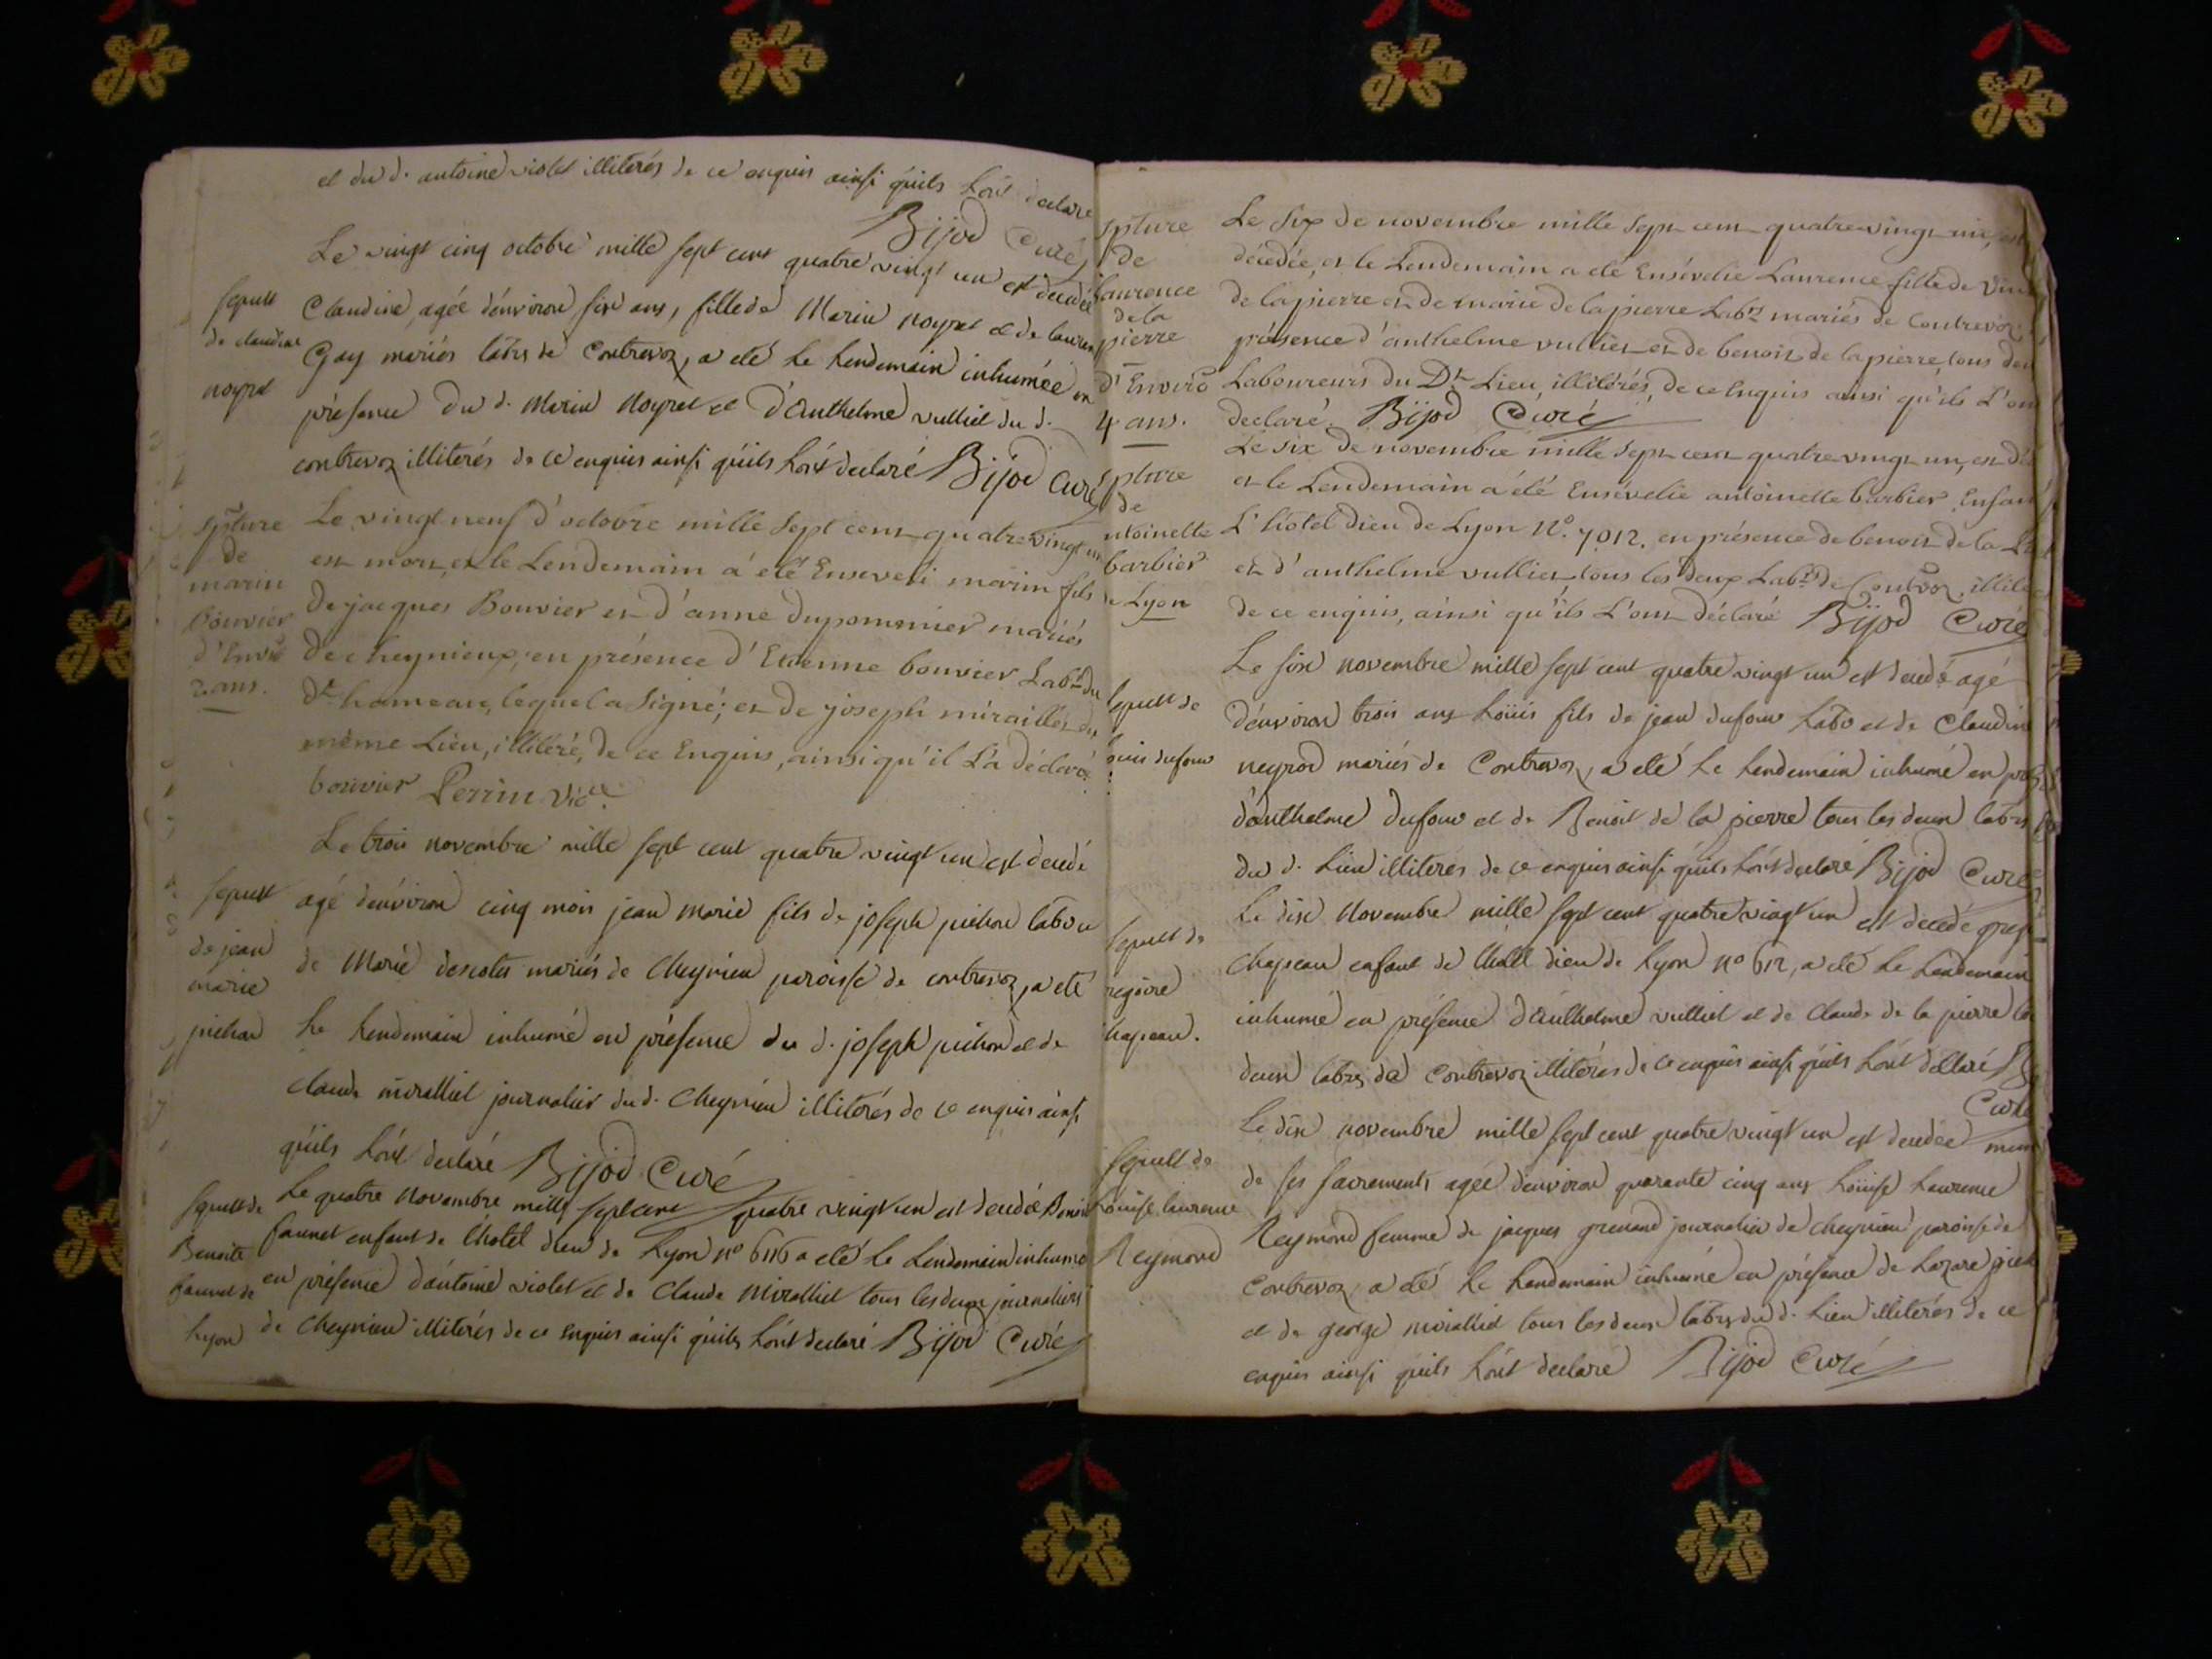 et du d. antoine violet illiterés de ce enquis ainsi quils l'ont declaré
Bijod Curé
Le vingt cinq octobre mille sept cent quatre vingt un est decedée
sepult
de claudine
noyret
Claudine, agée d'environ six ans, fille de Marin noyret et de laurence
Gay mariés labrs de Contrevoz, a eté le lendemain inhumée en
présence du d. Marin Noyret et d'Anthelme vulliet du d.
contrevoz illiterés de ce enquis ainsi quils l'ont declaré Bijod Curé
spture
de
marin
bouvier
d'Enviº
2 ans.
Le vingt neuf d'octobre mille sept cent quatre vingt un
est mort, et le Lendemain a été Enseveli marin fils
de jacques Bouvier et d'anne dupommier mariés
de cheynieux, en présence d'Etienne bouvier Labr du
dt hameau, lequel a Signé; et de joseph miraillet du
même Lieu, illiteré, de ce Enquis, ainsi qu'il L'a déclaré.
bouvier Perrin Vic.e
Le trois novembre mille sept cent quatre vingt un est decedé
sepult
de jean
marie
pichon
agé d'environ cinq mois jean Marie fils de joseph pichon labo et
de Marie descotes mariés de Cheynieu paroisse de contrevoz, a eté
le lendemain inhumé en présence du d. joseph pichon et de
claude miralliet journalier du d. Cheynieu illiterés de ce enquis ainsi
quils l'ont declaré Bijod Curé
sepult de
Benoite
faunet de
Lyon
Le quatre novembre mille sept cent quatre vingt un est decedée Benoite
faunet enfant de l'hotel dieu de Lyon nº 6116 a eté le Lendemain inhumé
en présence d'antoine violet et de Claude Miralliet tous les deux journaliers
de Cheynieu illiterés de ce enquis ainsi quils l'ont declaré Bijod Curé
spture
de
laurence
de la
pierre
d'Enviro
4 ans.
Le six de novembre mille sept cent quatre vingt un, est
décédée, et le Lendemain a été Ensévelie Laurence fille de Vin
de lapierre et de marie de lapierre Labrs mariés de Contrevoz
présence d'anthelme vulliet et de benoit de lapierre, tous deu
Laboureurs du Dt Lieu, illitérés, de ce Enquis ainsi qu'ils L'on
declaré. Bijod Curé
spture
de
ntoinette
barbier
de Lyon
Le six de novembre mille sept cent quatre vingt un, est dé
et le Lendemain a été Ensévelie antoinette barbier Enfan
L'hotel Dieu de Lyon Nº. 7012. en présence de benoit de la
et d'anthelme vulliet tous les deux Labrs de Contrvoz, illite
de ce enquis, ainsi qu'ils L'ont déclaré Bijod Curé
sepult de
ouis dufour
Le six novembre mille sept cent quatre vingt un est decedé agé
d'environ trois ans Loüis fils de jean dufour Labo et de Claudine
neyrod mariés de Contrevoz, a eté le lendemain inhumé en prés
d'anthelme dufour et de Benoit de la pierre tous les deux labrs
du d. Lieu illiterés de ce enquis ainsi quils l'ont declaré Bijod Curé
sepult de
regoire
hapeau.
Le dix Novembre mille sept cent quatre vingt un est decedé greg
Chapeau enfant de l'hotel dieu de Lyon nº 612, a eté le lendemain
inhumé en présence d'Anthelme vulliet et de Claude de la pierre les
deux labrs de Contrevoz illiterés de ce enquis ainsi quils l'ont declaré
Curé
sepult de
Loüise laurence
Reymond
Le dix novembre mille sept cent quatre vingt un est decedée muni
de ses sacrements agée d'environ quarante cinq ans Loüise Laurence
Reymond femme de jacques grenand journalier de Cheynieu paroisse de
Contrevoz, a eté le lendemain inhumé en présence de Lazare
et de george miralliet tous les deux labrs du d. Lieu illiterés de ce
enquis ainsi quils l'ont declaré Bijod Curé